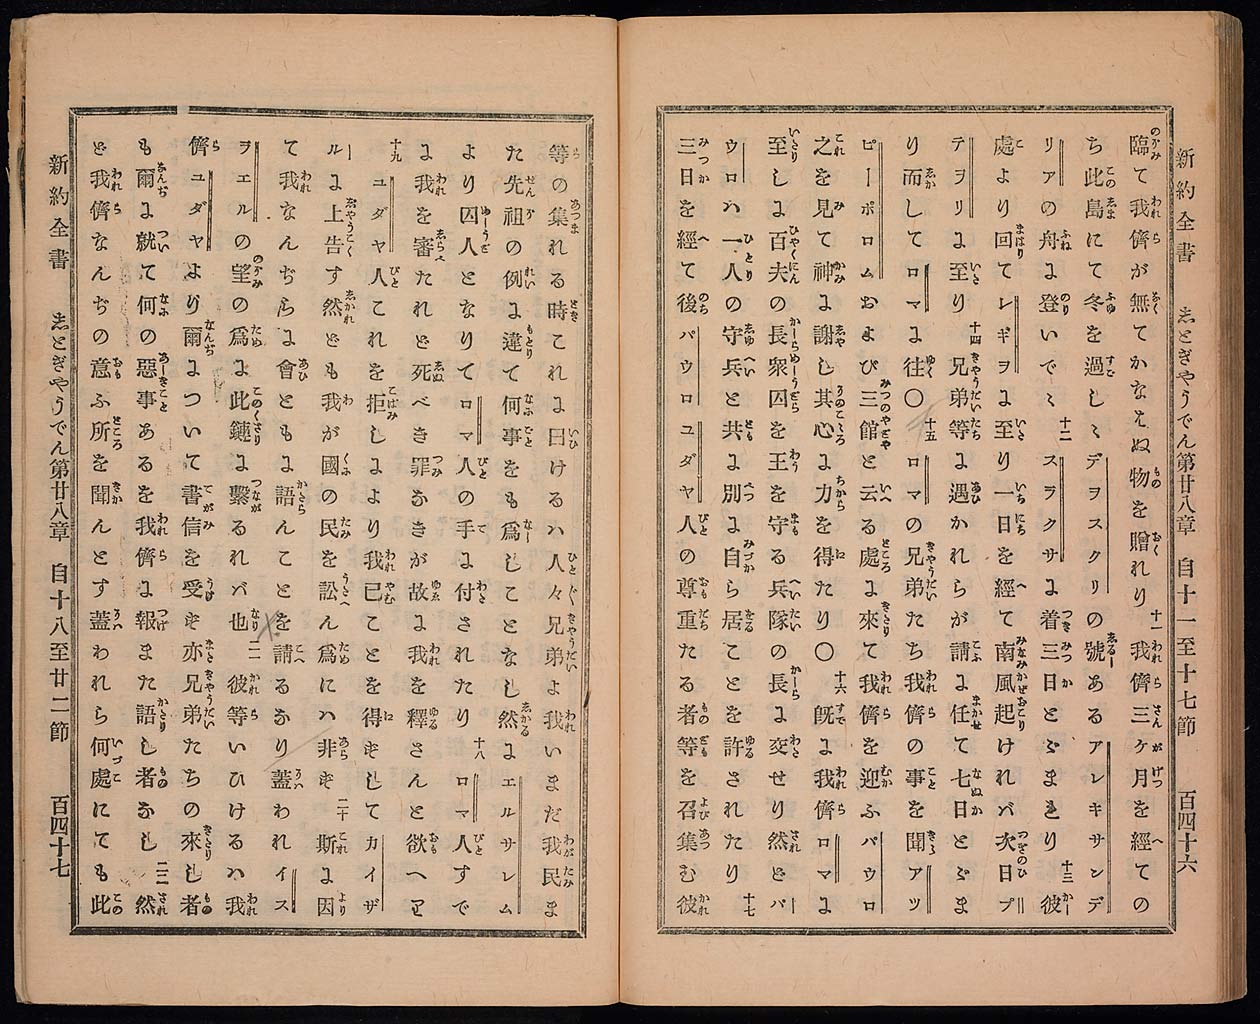 新約全書　志とぎやうでん第廿八章　自十一至十七節　百四十六
臨て我儕が無てかなはぬ物を贈れり 十一 我儕三ケ月を經ての
ち此島にて冬を過しヽデヲスクリの號あるアレキサンデ
リアの舟に登いでヽ 十二 スラクサに着三日とゞまれり 十三 彼
處より回てレギヲに至り一日を經て南風起けれバ次日プ
テヲリに至り 十四 兄弟等に遇かれらが請に任て七日とゞま
り而してロマに往〇 十五 ロマの兄弟たち我儕の事を聞アツ
ピーポロムおよび三館と云る處に來て我儕を迎ふパウロ
之を見て神に謝し其心に力を得たり〇 十六 既に我儕ロマに
至しに百夫の長衆囚を王を守る兵隊の長に交せり然どパ
ウロハ一人の守兵と共に別に自ら居ことを許されたり 十七
三日を經て後パウロユダヤ人の尊重たる者等を召集む彼
等の集れる時これに曰けるハ人々兄弟よ我いまだ我民ま
た先祖の例に違て何事をも爲しことなし然にエルサレム
より囚人となりてロマ人の手に付されたり 十八 ロマ人すで
に我を審たれど死べき罪なきが故に我を釋さんと欲へり
十九 ユダヤ人これを拒しにより我已ことを得ずしてカイザ
ルに上告す然ども我が國の民を訟ん爲にハ非ず 二十 斯に因
て我なんぢらに會ともに語んことを請るなり蓋われイス
ヲエルの望の爲に此鏈に繫るれバ也 二一 彼等いひけるハ我
儕ユダヤより爾について書信を受ず亦兄弟たちの來し者
も爾に就て何の惡事あるを我儕に報また語し者なし 二二 然
ど我儕なんぢの意ふ所を聞んとす蓋われら何處にても此
新約全書　志とぎやうでん第廿八章　自十八至廿二節　百四十七